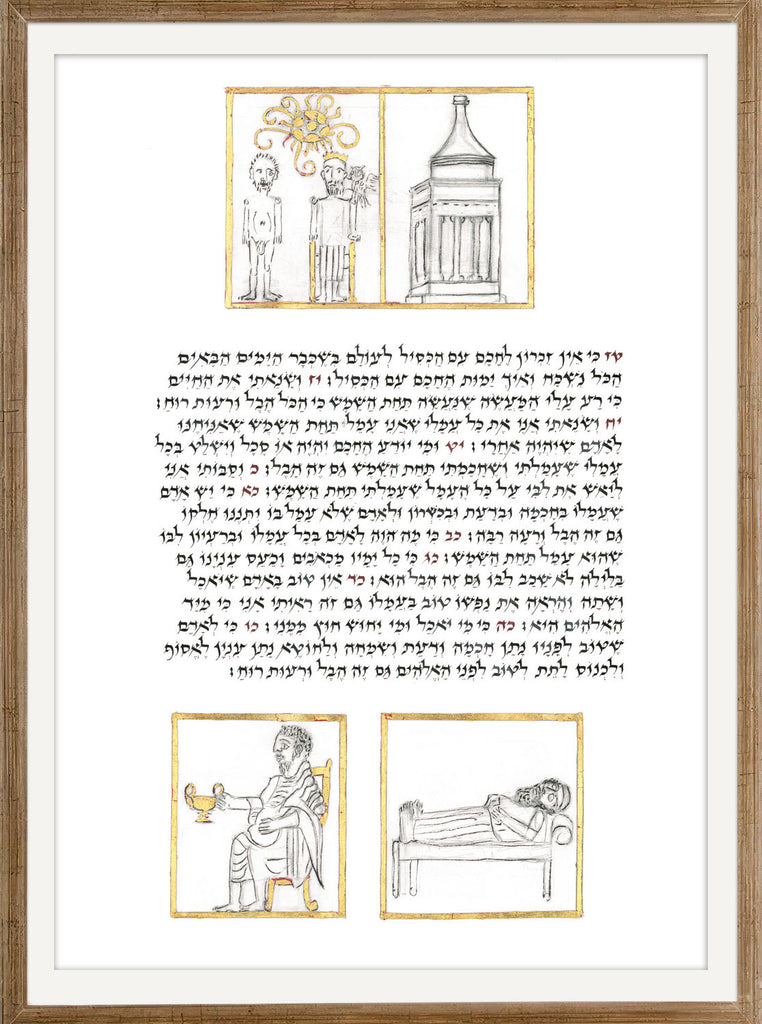 טז כִּי אֵין זִכְרוֹן לֶחָכָם עִם הַכְּסִיל לְעוֹלָם בְּשֶׁכְּבָר הַיָּמִים הַבָּאִים
הַכֹּל נִשְׁכָּח וְאֵיךְ יָמוּת הֶחָכָם עִם הַכְּסִיל: יז וְשָׂנֵאתִי אֶת הַחַיִּים
כִּי רַע עָלַי הַמַּעֲשֶׂה שֶׁנַּעֲשָׂה תַּחַת הַשָּׁמֶשׁ כִּי הַכֹּל הֶבֶל וּרְעוּת רוּחַ:
יח וְשָׂנֵאתִי אֲנִי אֶת כָּל עֲמָלִי שֶׁאֲנִי עָמֵל תַּחַת הַשָּׁמֶשׁ שֶׁאַנִּיחֶנּוּ
לָאָדָם שֶׁיִּהְיֶה אַחֲרָי: יט וּמִי יוֹדֵעַ הֶחָכָם יִהְיֶה אוֹ סָכָל וְיִשְׁלַט בְּכָל
עֲמָלִי שֶׁעָמַלְתִּי וְשֶׁחָכַמְתִּי תַּחַת הַשָּׁמֶשׁ גַּם זֶה הָבֶל: כ וְסַבּוֹתִי אֲנִי
לְיַאֵשׁ אֶת לִבִּי עַל כָּל הֶעָמָל שֶׁעָמַלְתִּי תַּחַת הַשָּׁמֶשׁ: כא כִּי יֵשׁ אָדָם
שֶׁעֲמָלוֹ בְּחָכְמָה וּבְדַעַת וּבְכִשְׁרוֹן וּלְאָדָם שֶׁלֹּא עָמַל בּוֹ יִתְּנֶנּוּ חֶלְקוֹ
גַּם זֶה הֶבֶל וְרָעָה רַבָּה: כב כִּי מֶה הֹוֶה לָאָדָם בְּכָל עֲמָלוֹ וּבְרַעְיוֹן לִבּוֹ
שֶׁהוּא עָמֵל תַּחַת הַשָּׁמֶשׁ: כג כִּי כָל יָמָיו מַכְאֹבִים וָכַעַס עִנְיָנוֹ גַּם
בַּלַּיְלָה לֹא שָׁכַב לִבּוֹ גַּם זֶה הֶבֶל הוּא: כד אֵין טוֹב בָּאָדָם שֶׁיֹּאכַל
וְשָׁתָה וְהֶרְאָה אֶת נַפְשׁוֹ טוֹב בַּעֲמָלוֹ גַּם זֹה רָאִיתִי אָנִי כִּי מִיַּד
הָאֱלֹהִים הִיא: כה כִּי מִי יֹאכַל וּמִי יָחוּשׁ חוּץ מִמֶּנִּי: כו כִּי לְאָדָם
שֶׁטּוֹב לְפָנָיו נָתַן חָכְמָה וְדַעַת וְשִׂמְחָה וְלַחוֹטֶא נָתַן עִנְיָן לֶאֱסוֹף
וְלִכְנוֹס לָתֵת לְטוֹב לִפְנֵי הָאֱלֹהִים גַּם זֶה הֶבֶל וּרְעוּת רוּחַ: